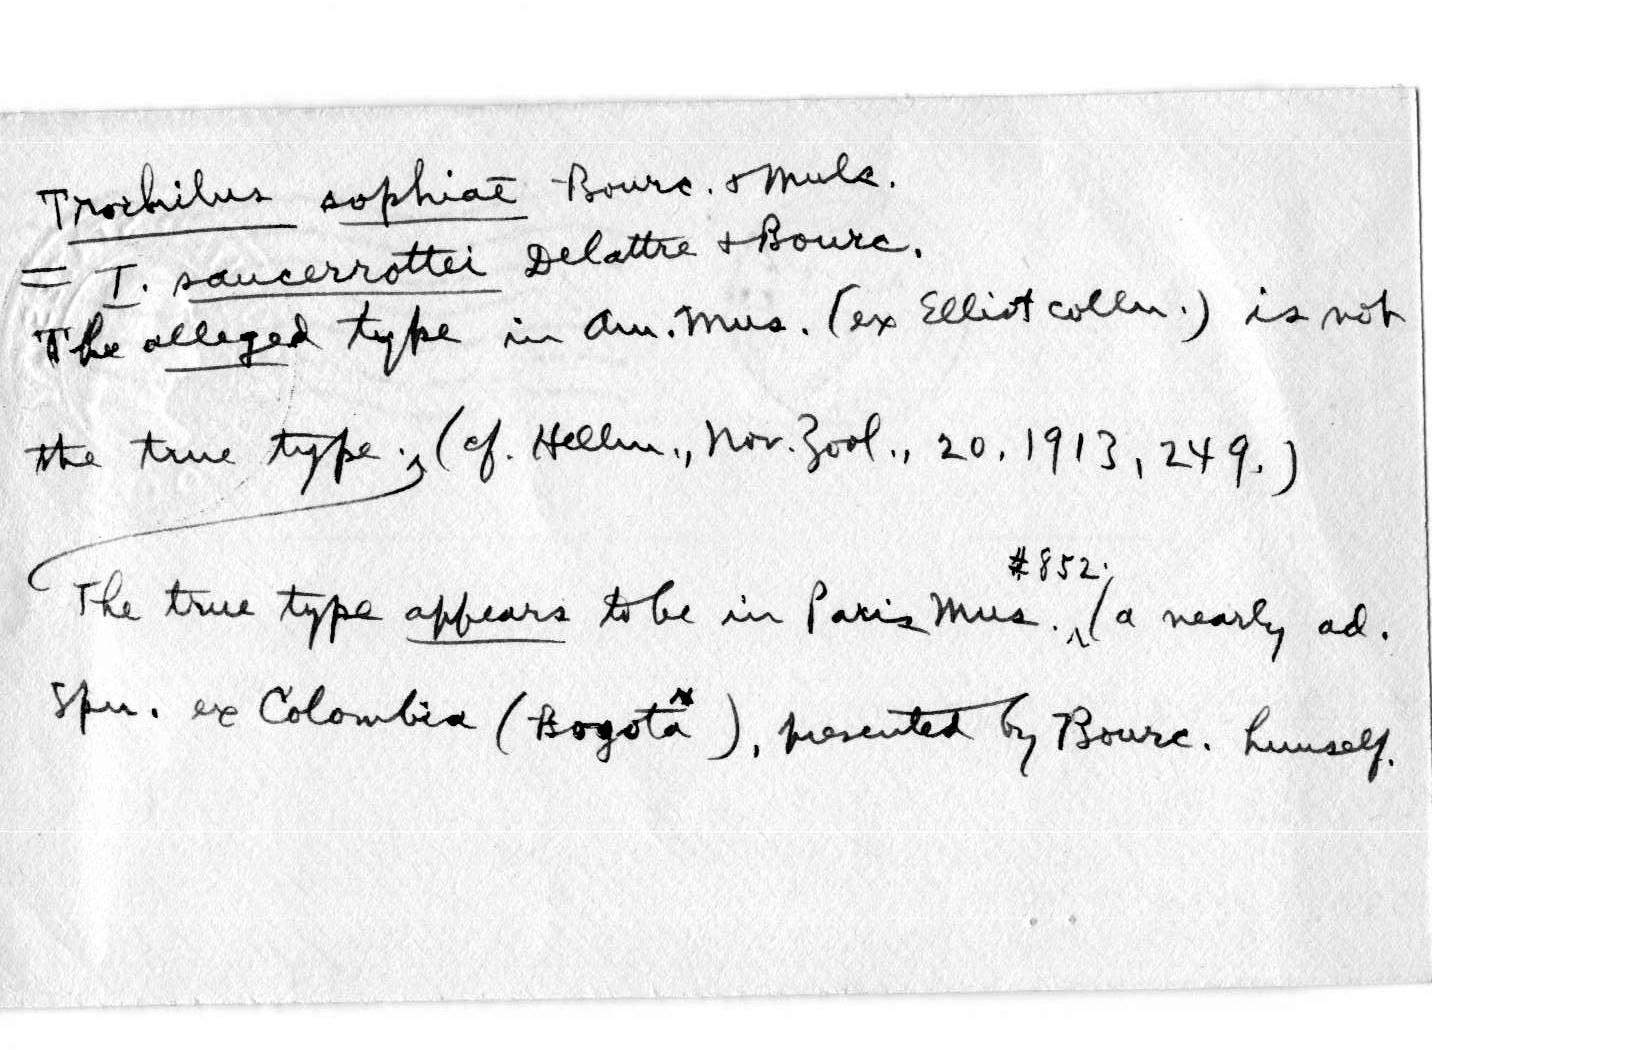 Trochilus sophiae Bourc. & Muls.
= T. saucerrottei Delattre & Bourc.
The alleged type in Am. Mus. (ex Elliot colln.) is not
the true type. (cf. Hellm., Nov. Zool., 20, 1913, 249.)
#852.
The true type appears to be in Paris Mus. (a nearly ad.
Spm. ex Colombia (Bogotá), presented by Bourc. himself.